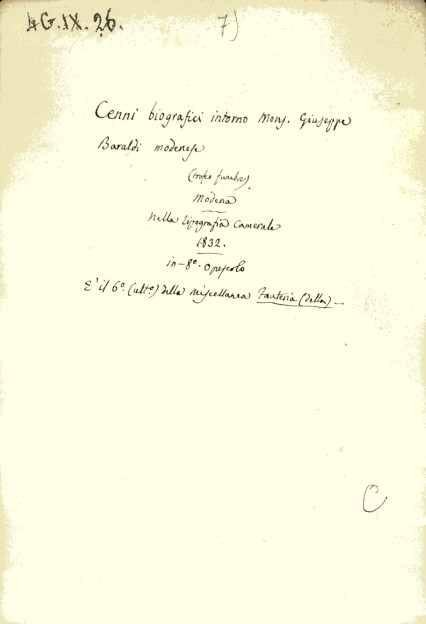 4G.IX.26. 7)
Cenni biografici intorno Mons. Giuseppe
Baraldi modenese
(trofeo funebre).
Modena
Nella Tipografia Camerale
1832.
in-8º. Opuscolo
E' il 6º. (ultº.) della Miscellanea Fanteria (della) —
C